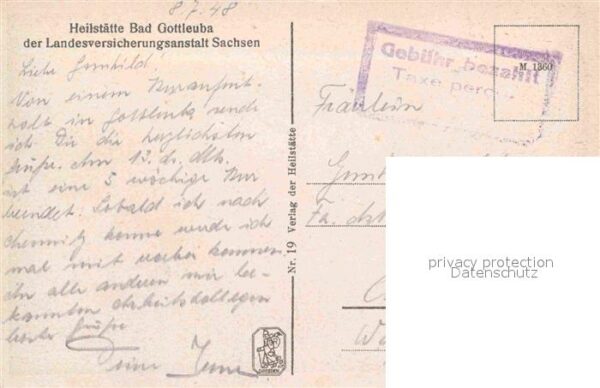 8.7.48
Heilstätte Bad Gottleuba
der Landesversicherungsanstalt Sachsen
Liebe Gunhild!
Von einem Kuraufent-
halt in Gottleuba sende
ich Dir die herzlichsten
Grüße. Am 13. d. Mts.
ist eine 5 wöchige Kur
beendet. Sobald ich nach
Chemnitz komme werde ich
mal mit vorbei kommen.
ihr alle anderen mir be-
kannten Arbeitskollegen
beste Grüße
Deine
Nr. 19 Verlag der Heilstätte
Gebühr bezahlt
Taxe percue
M. 1360
Fräulein
Fa.
privacy protection
Datenschutz